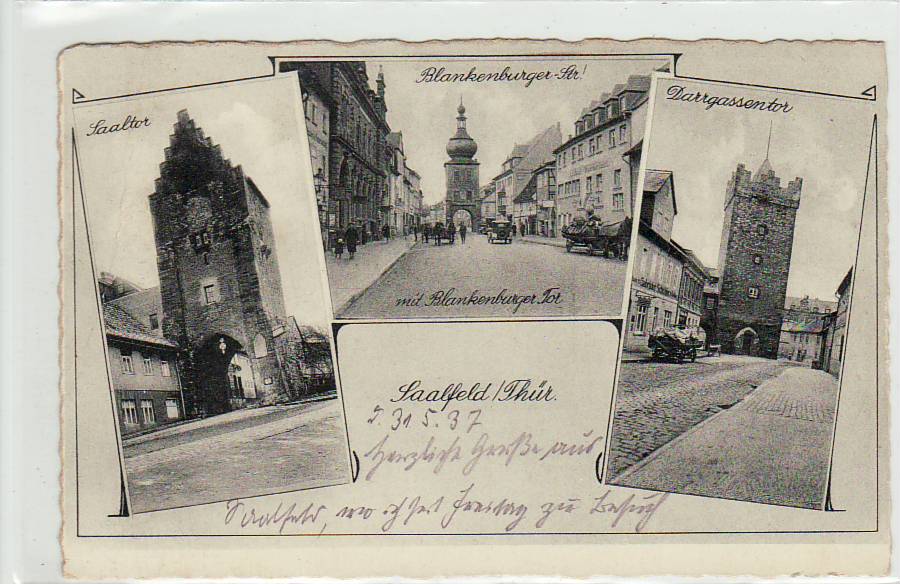 Saaltor
Blankenburger-Str!
Darrgassentor
mit Blankenburger Tor
Saalfeld/Thür.
31.5.37
Herzliche Grüße aus
Saalfeld, wo ich seit Freitag zu Besuch